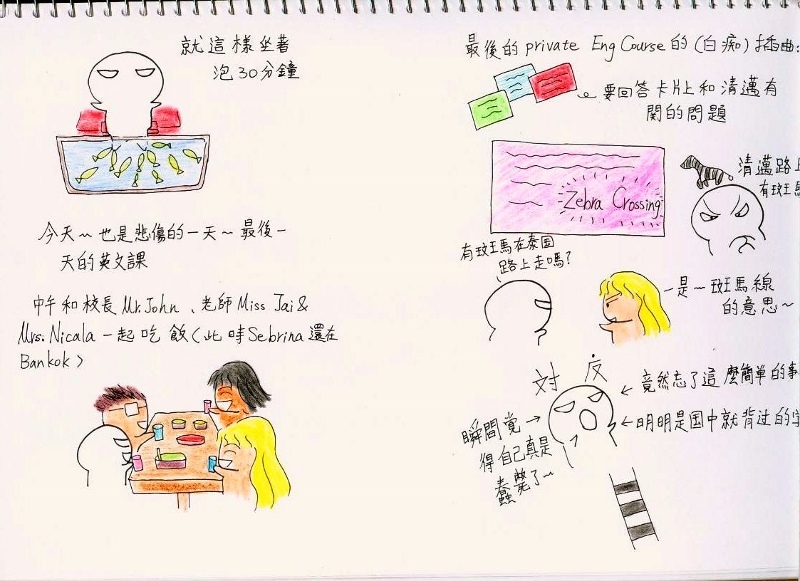 就這樣坐著
泡30分鐘
今天～也是悲傷的一天～最後一
天的英文課
中午和校長Mr.John、老師Miss Jai &
Mrs. Nicala一起吃飯(此時Sebrina還在
Bankok)
最後的private Eng Course的(白痴)插曲:
要回答卡片上和清邁有
関的問題
Zebra Crossing
清邁路上
有斑馬
有斑馬在泰国
路上走嗎?
是～斑馬線
的意思～
対反
竟然忘了這麼簡單的事
明明是国中就背过的字
瞬間覚
得自己真是
蠢斃了～